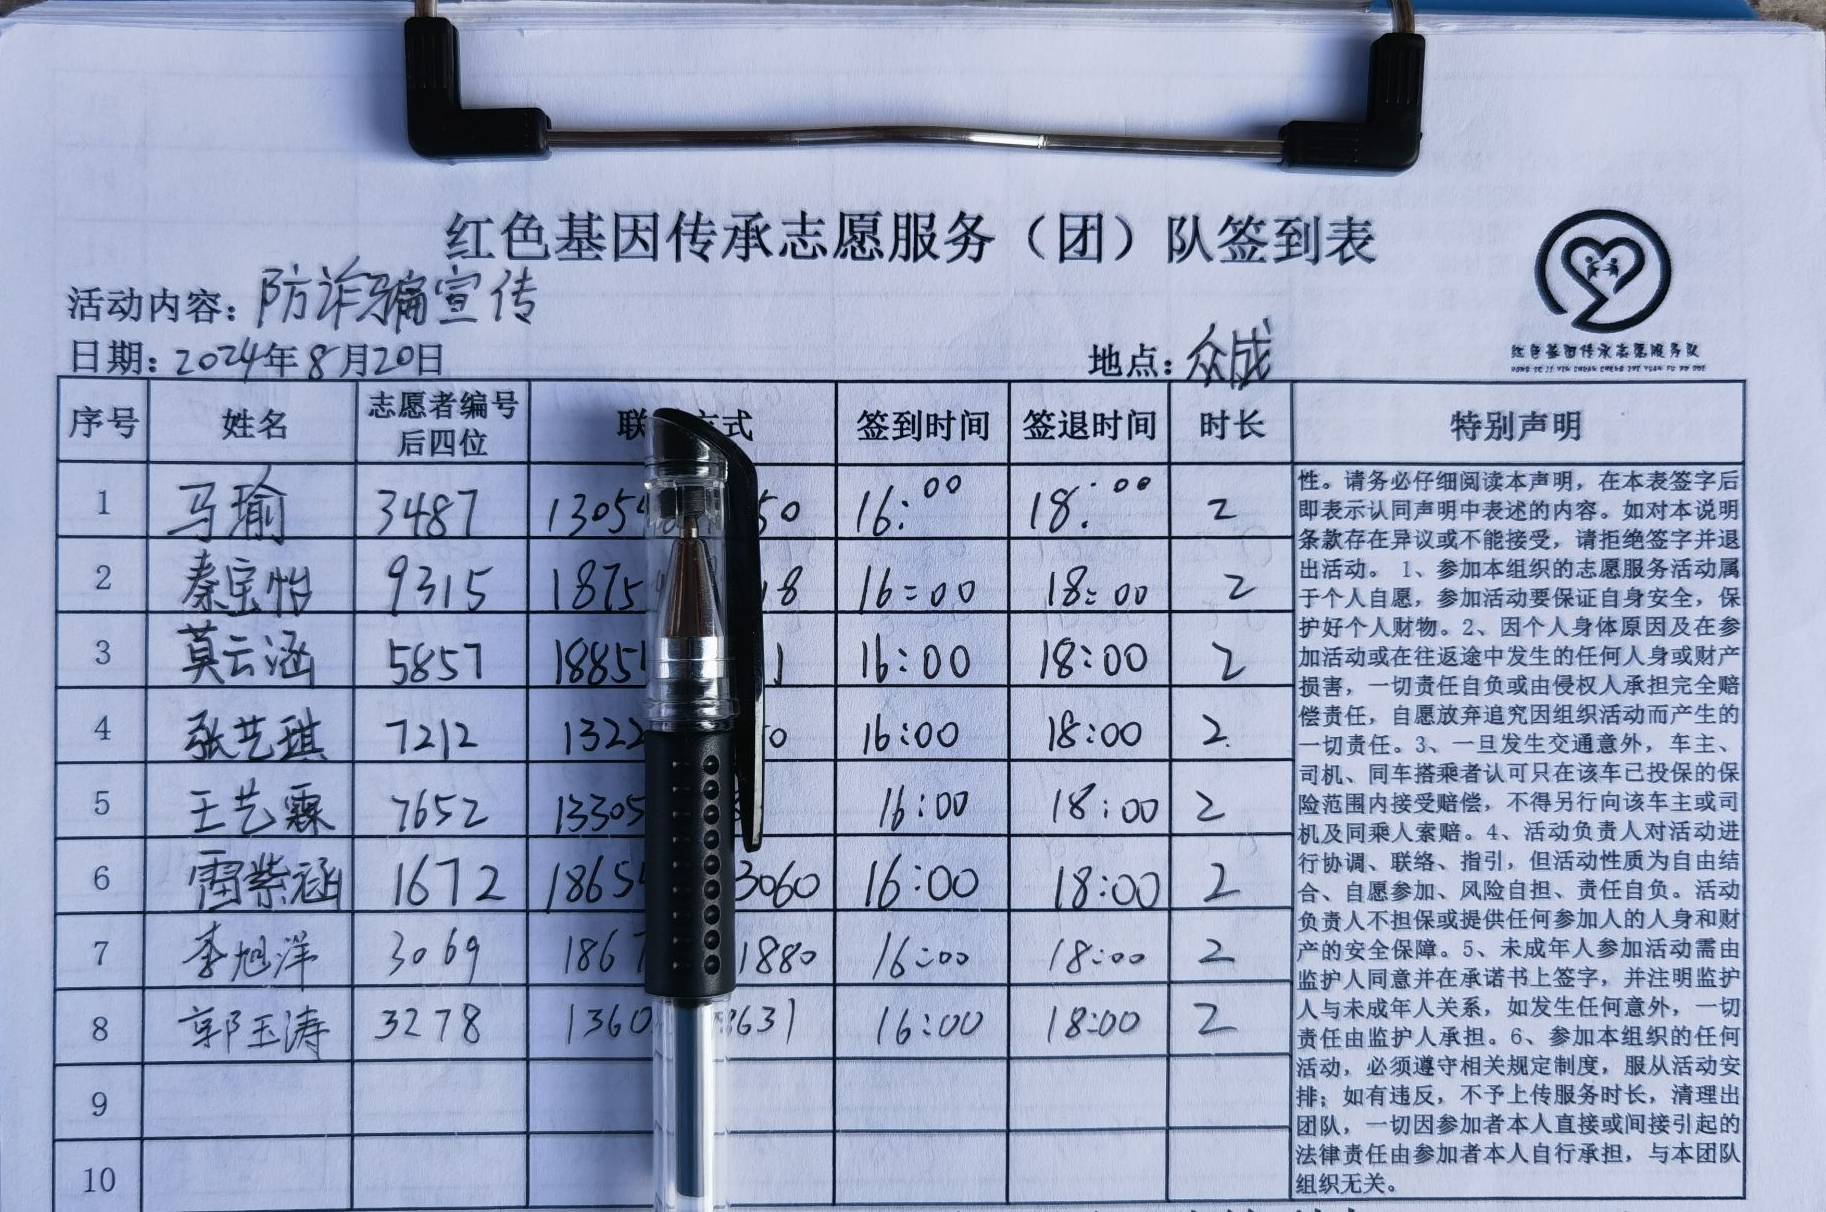 红色基因传承志愿服务（团）队签到表
活动内容：防诈骗宣传
日期：2024年8月20日
地点：众成
红色基因传承志愿服务队
HONG SE JI YIN CHUAN CHENG ZHI YUAN FU WU DUI
序号 姓名 志愿者编号后四位 联 方式 签到时间 签退时间 时长 特别声明
1 马瑜 3487 1305 50 16:00 18:00 2
2 秦宝怡 9315 1875 18 16:00 18:00 2
3 莫云涵 5857 1885 1 16:00 18:00 2
4 张艺琪 7212 1322 0 16:00 18:00 2
5 王艺霖 7652 13305 16:00 18:00 2
6 雷紫涵 1672 1865 3060 16:00 18:00 2
7 李旭洋 3069 1867 1880 16:00 18:00 2
8 郭玉涛 3278 1360 3631 16:00 18:00 2
9
10
性。请务必仔细阅读本声明，在本表签字后
即表示认同声明中表述的内容。如对本说明
条款存在异议或不能接受，请拒绝签字并退
出活动。 1、参加本组织的志愿服务活动属
于个人自愿，参加活动要保证自身安全，保
护好个人财物。2、因个人身体原因及在参
加活动或在往返途中发生的任何人身或财产
损害，一切责任自负或由侵权人承担完全赔
偿责任，自愿放弃追究因组织活动而产生的
一切责任。3、一旦发生交通意外，车主、
司机、同车搭乘者认可只在该车已投保的保
险范围内接受赔偿，不得另行向该车主或司
机及同乘人索赔。4、活动负责人对活动进
行协调、联络、指引，但活动性质为自由结
合、自愿参加、风险自担、责任自负。活动
负责人不担保或提供任何参加人的人身和财
产的安全保障。5、未成年人参加活动需由
监护人同意并在承诺书上签字，并注明监护
人与未成年人关系，如发生任何意外，一切
责任由监护人承担。6、参加本组织的任何
活动，必须遵守相关规定制度，服从活动安
排；如有违反，不予上传服务时长，清理出
团队，一切因参加者本人直接或间接引起的
法律责任由参加者本人自行承担，与本团队
组织无关。